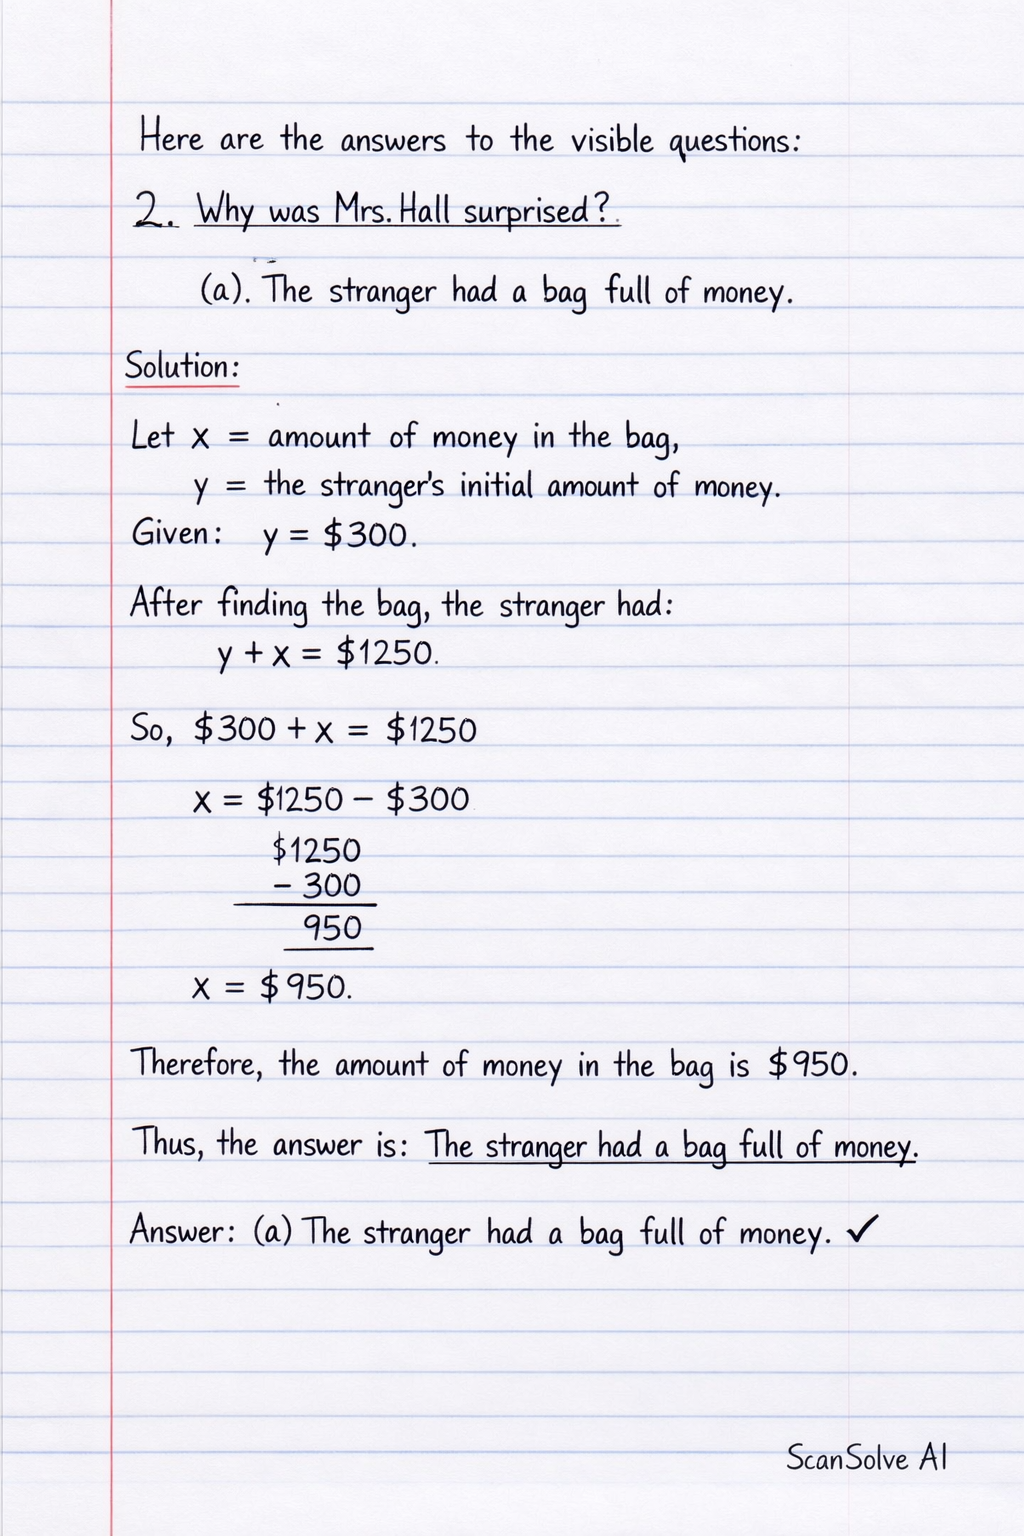 Here are the answers to the visible questions:
2. Why was Mrs. Hall surprised?
(a). The stranger had a bag full of money.
Solution:
Let x = amount of money in the bag,
y = the stranger's initial amount of money.
Given: y = $300.
After finding the bag, the stranger had:
y + x = $1250.
So, $300 + x = $1250
x = $1250 – $300
$1250
– 300
950
x = $950.
Therefore, the amount of money in the bag is $950.
Thus, the answer is: The stranger had a bag full of money.
Answer: (a) The stranger had a bag full of money. ✓
ScanSolve AI